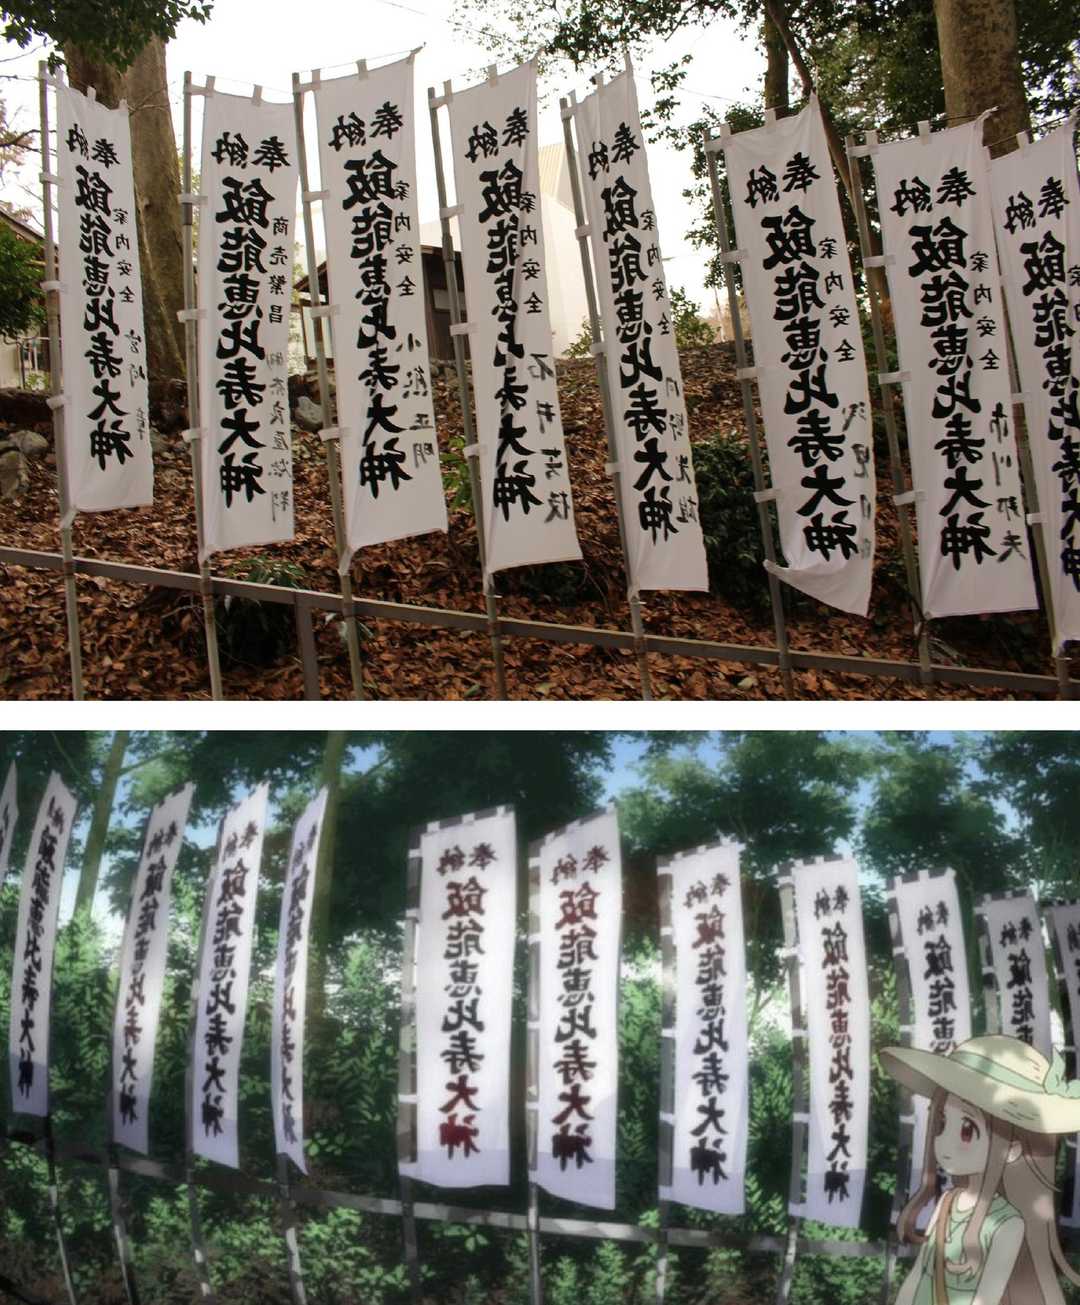 奉納
家内安全 宮崎 章
飯能恵比寿大神
奉納
商売繁昌
飯能恵比寿大神
奉納
家内安全 小熊正明
飯能恵比寿大神
奉納
家内安全 石井芳枝
飯能恵比寿大神
奉納
家内安全
飯能恵比寿大神
奉納
家内安全
飯能恵比寿大神
奉納
家内安全 市川邦夫
飯能恵比寿大神
奉納
飯能恵比寿大神
納
飯能恵比寿大神
奉納
飯能恵比寿大神
奉納
飯能恵比寿大神
奉納
飯能恵比寿大神
奉納
飯能恵比寿大神
奉納
飯能恵比寿大神
奉納
飯能恵比寿大神
奉納
飯能恵比寿大神
奉納
飯能恵
奉納
飯能恵